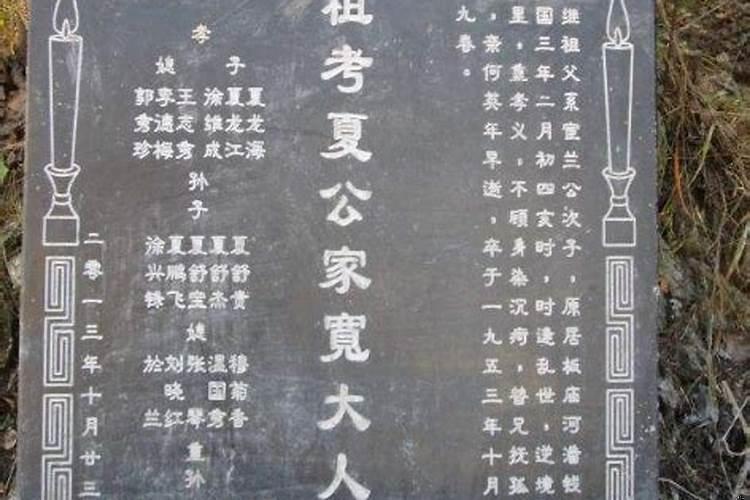 继祖父系宣兰公次子，原居板庙河潘钱
国三年二月初四亥时，时逢乱世，逆境
里，重孝义，不顾身染沉疴，替兄抚孤
，奈何英年早逝，卒于一九五三年十月
九春。
祖考夏公家寬大人
孝
子
夏龙海
夏龙江
徐维成
媳
王志秀
李德梅
郭秀珍
孙子
夏舒贵
夏舒杰
夏舒宝
夏鹏飞
徐兴
媳
穆菊香
温国秀
张琴
刘晓红
於兰
重孙
二零一三年十月廿三